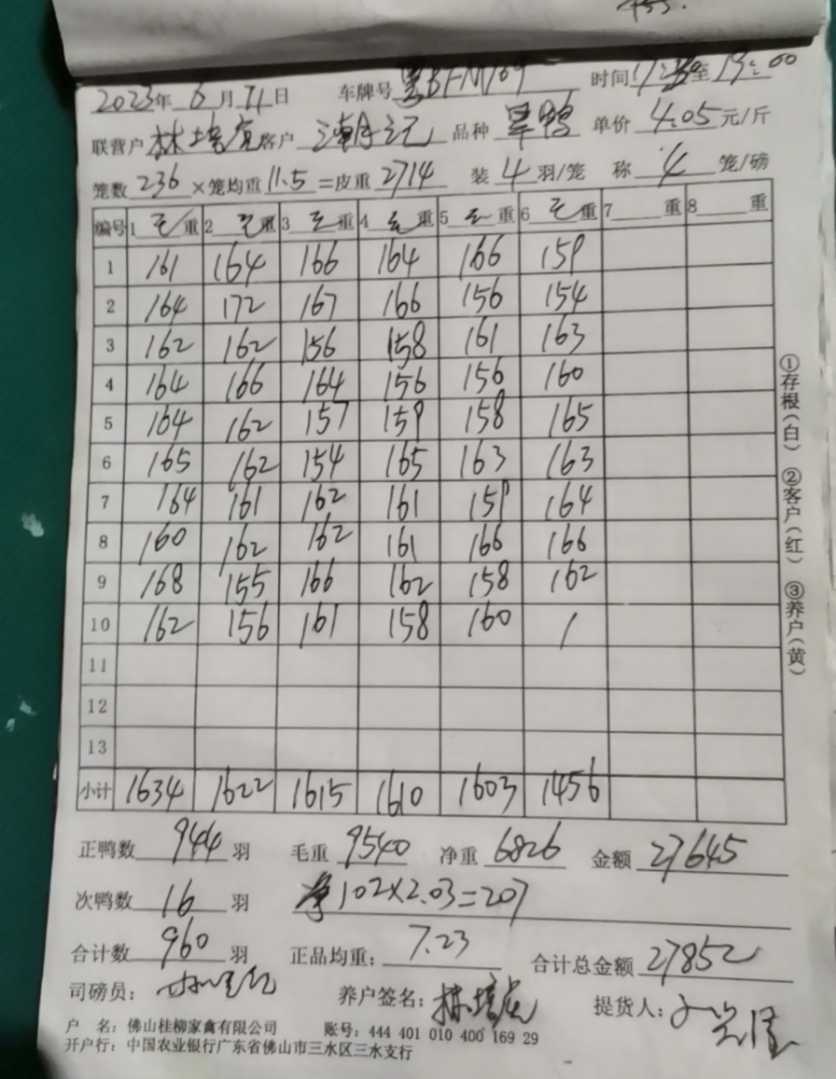 455.
2023年 6 月 21 日 车牌号 时间 至 19:00
联营户 林培 客户 潮记 品种 旱鸭 单价 4.05 元/斤
笼数 236 ×笼均重 11.5 =皮重 2714 装 4 羽/笼 称 4 笼/磅
编号 1 毛 重 2 毛 重 3 毛 重 4 毛 重 5 毛 重 6 毛 重 7 重 8 重
1 161 164 166 164 166 159
2 164 172 167 166 156 154
3 162 162 156 158 161 163
4 164 166 164 156 156 160
5 164 162 157 159 158 165
6 165 162 154 165 163 163
7 164 161 162 161 159 164
8 160 162 162 161 166 166
9 168 155 166 162 158 162
10 162 156 161 158 160 /
11
12
13
小计 1634 1622 1615 1610 1603 1456
正鸭数 944 羽 毛重 9540 净重 6826 金额 27645
次鸭数 16 羽 102×2.03=207
合计数 960 羽 正品均重: 7.23 合计总金额 27852
司磅员: 养户签名: 林培 提货人:
户 名: 佛山桂柳家禽有限公司 账号: 444 401 010 400 169 29
开户行: 中国农业银行广东省佛山市三水区三水支行
①存根(白) ②客户(红) ③养户(黄)